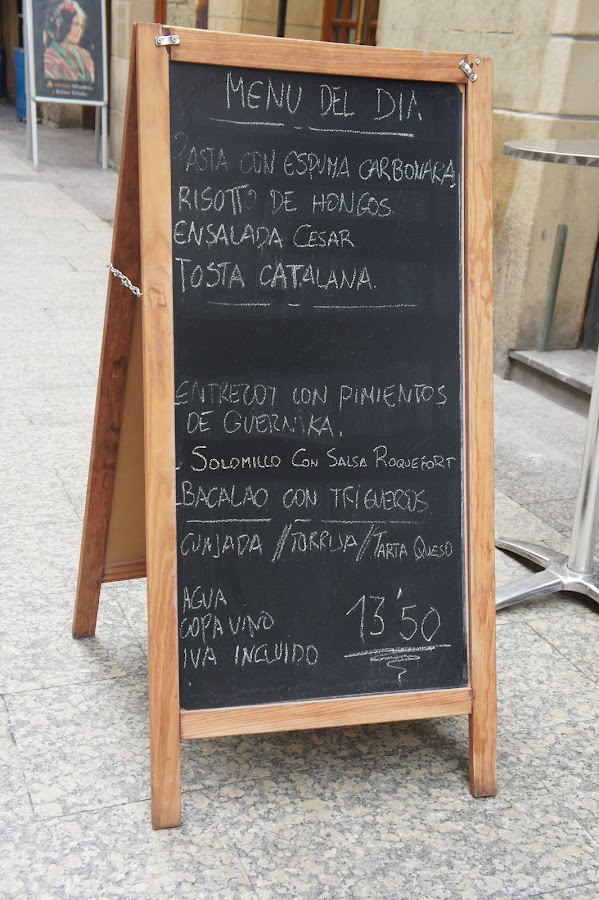 MENU DEL DIA
PASTA CON ESPUMA CARBONARA,
RISOTTO DE HONGOS
ENSALADA CESAR
TOSTA CATALANA.
ENTRECOT CON PIMIENTOS
DE GUERNIKA.
SOLOMILLO CON SALSA ROQUEFORT
BACALAO CON TRIGUEROS
CUAJADA // TORRIJA / TARTA QUESO
AGUA
COPA VINO
IVA INCLUIDO
13'50